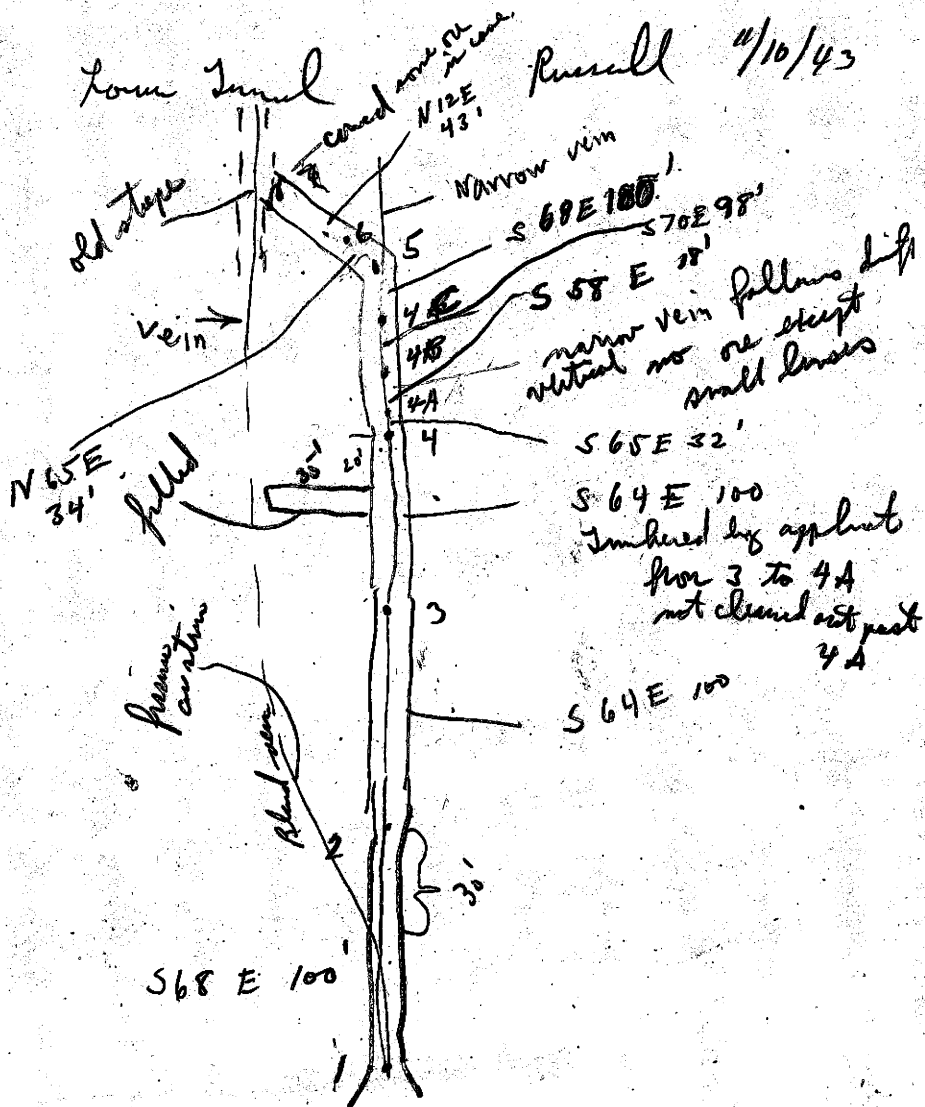 Lower Tunnel
Russell 11/10/43
caved some ore
in cave
N12E
43'
Narrow vein
old stope
S 68E 100'
S70E 98'
6
5
S 58 E 18'
4C
Vein
narrow vein follows drift
vertical no ore except
small lenses
4B
4A
4
S 65E 32'
N 65E
34'
filled
30'
20'
S 64 E 100
Timbered by applicant
from 3 to 4A
not cleaned out past
4A
3
S 64 E 100
Blend vein
2
30'
S68 E 100'
1